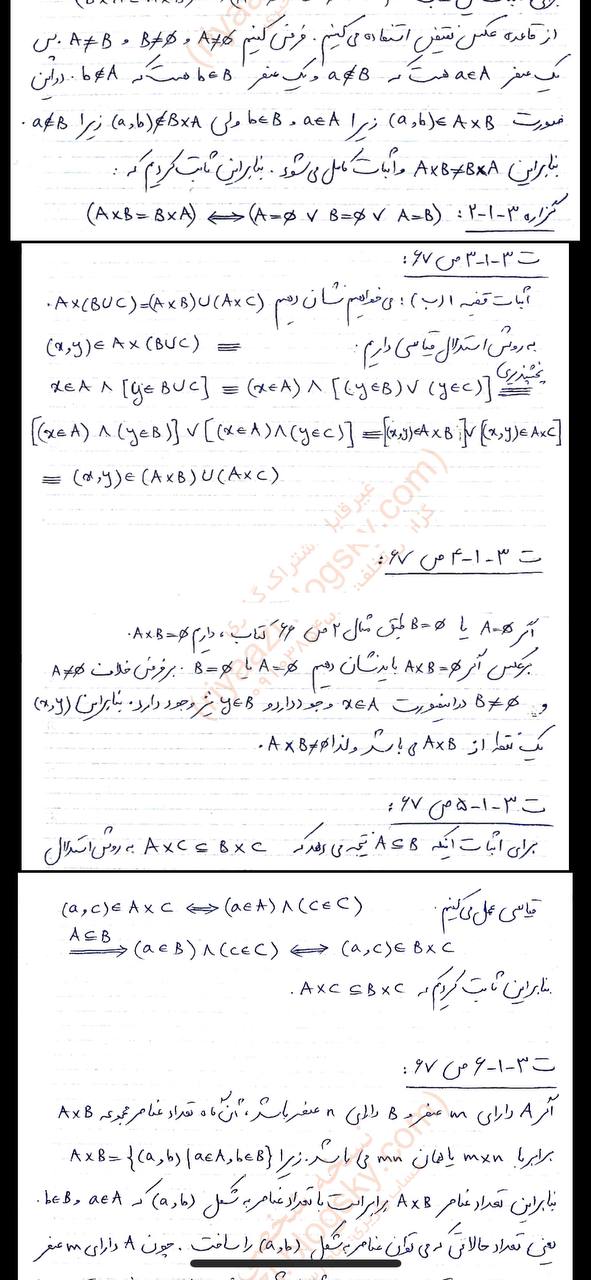 از قاعده عکس نقیض استفاده می‌کنیم. فرض کنیم A≠∅ و B≠∅ و A≠B. پس
یک عنصر a∈A هست که a∉B و یک عنصر b∈B هست که b∉A. در این
صورت (a,b)∈A×B زیرا a∈A و b∈B ولی (a,b)∉B×A زیرا a∉B.
بنابراین A×B≠B×A و اثبات کامل می‌شود. بنابراین ثابت کردیم که:
گزاره ۳-۱-۲: (A×B=B×A) ⟺ (A=∅ ∨ B=∅ ∨ A=B)
ت ۳-۱-۳ ص ۶۷:
اثبات قضیه ۱ (ب): می‌خواهیم نشان دهیم A×(B∪C)=(A×B)∪(A×C).
به روش استدلال قیاسی داریم: (x,y)∈A×(B∪C) ≡
x∈A ∧ [y∈B∪C] ≡ (x∈A) ∧ [(y∈B)∨(y∈C)] ≡ پخشپذیری
[(x∈A)∧(y∈B)] ∨ [(x∈A)∧(y∈C)] ≡ [(x,y)∈A×B] ∨ [(x,y)∈A×C]
≡ (x,y)∈(A×B)∪(A×C)
ت ۳-۱-۴ ص ۶۷:
اگر A=∅ یا B=∅ طبق مثال ۲ ص ۶۶ کتاب، داریم A×B=∅.
برعکس اگر A×B=∅ باید نشان دهیم A=∅ یا B=∅. بر فرض خلاف A≠∅
و B≠∅ در اینصورت x∈A وجود دارد و y∈B نیز وجود دارد. بنابراین (x,y)
یک نقطه از A×B می باشد ولذا A×B≠∅.
ت ۳-۱-۵ ص ۶۷:
برای اثبات اینکه A⊆B نتیجه می دهد که A×C⊆B×C به روش استدلال
قیاسی عمل می‌کنیم. (a,c)∈A×C ⟺ (a∈A)∧(c∈C)
A⊆B ⟹ (a∈B)∧(c∈C) ⟺ (a,c)∈B×C
بنابراین ثابت کردیم که A×C⊆B×C.
ت ۳-۱-۶ ص ۶۷:
اگر A دارای m عنصر و B دارای n عنصر باشد، آن‌گاه تعداد عناصر مجموعه A×B
برابر با m×n یا همان mn می باشد. زیرا A×B={(a,b)|a∈A,b∈B}
بنابراین تعداد عناصر A×B برابر است با تعداد عناصر به شکل (a,b) که a∈A و b∈B.
یعنی تعداد حالاتی که می توان عناصر به شکل (a,b) را ساخت. چون A دارای m عنصر